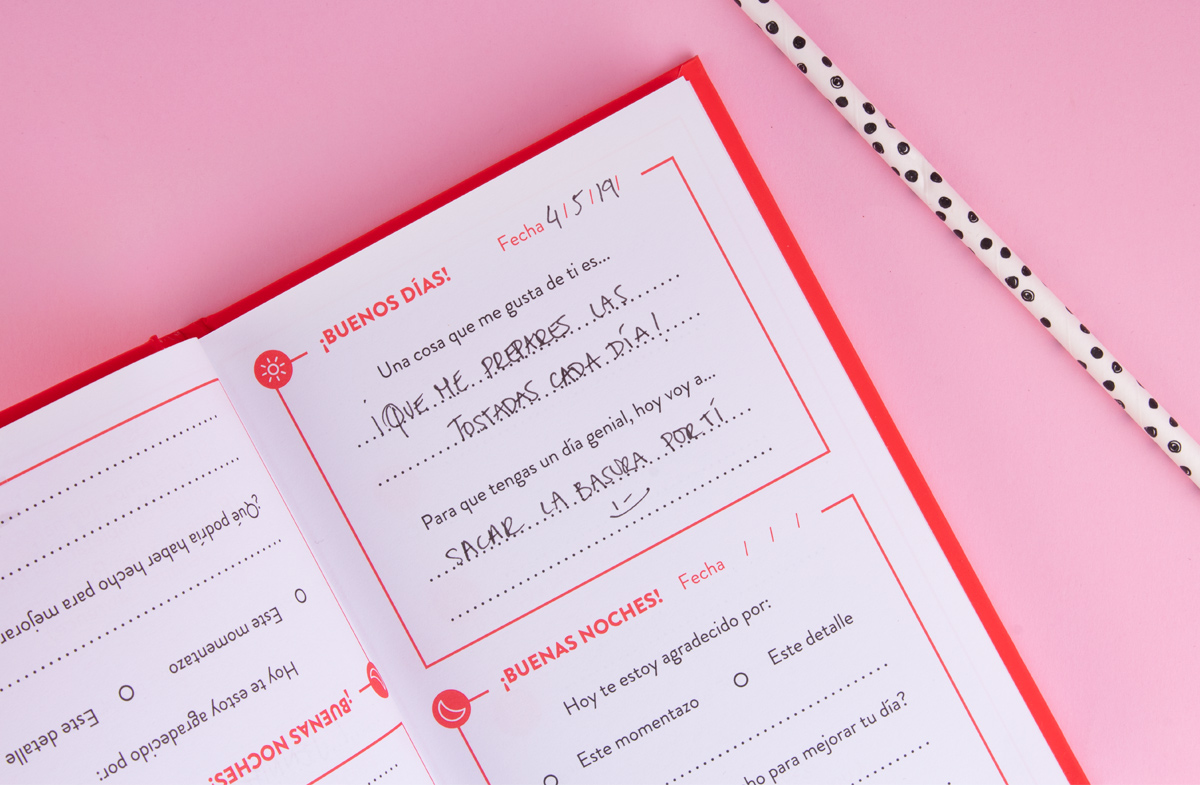 Fecha 4/5/19/
¡BUENOS DÍAS!
Una cosa que me gusta de ti es...
¡QUE ME PREPARES LAS
TOSTADAS CADA DÍA!
Para que tengas un día genial, hoy voy a...
SACAR LA BASURA POR TÍ
Fecha / / /
¡BUENAS NOCHES!
Hoy te estoy agradecido por:
Este momentazo Este detalle
ho para mejorar tu día?
¡BUENAS NOCHES!
Hoy te estoy agradecido por:
Este momentazo Este detalle
¿Qué podría haber hecho para mejorar